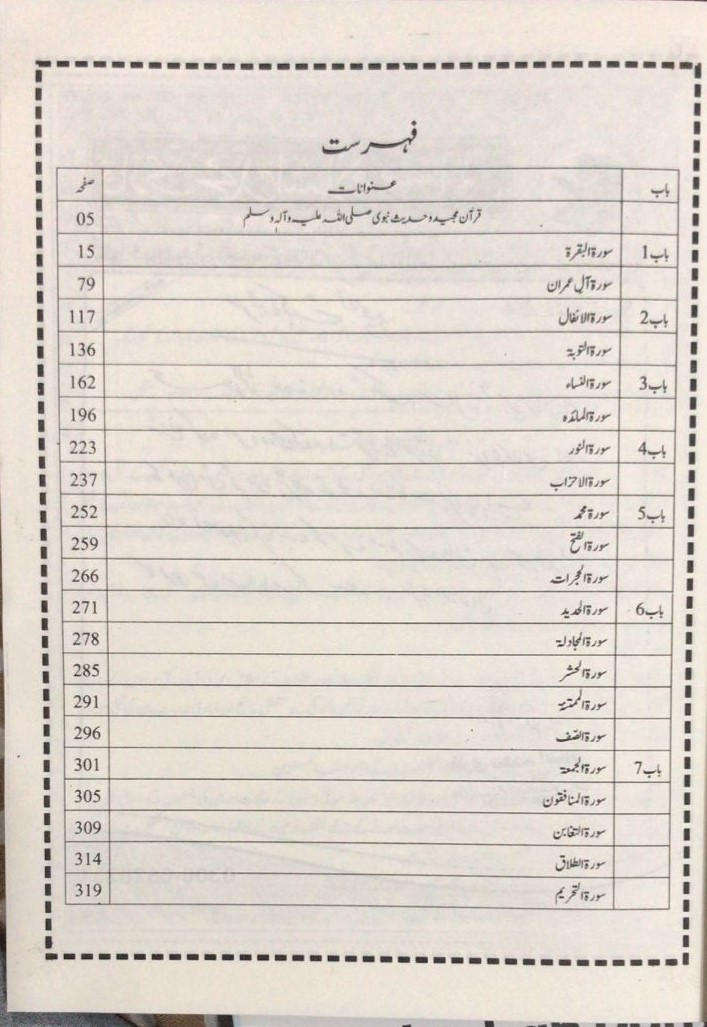 فہرست
باب عنوانات صفحہ
قرآن مجید و حدیث نبوی صلی اللہ علیہ وآلہ وسلم 05
باب1 سورۃ البقرۃ 15
سورۃ آل عمران 79
باب2 سورۃ الانفال 117
سورۃ التوبۃ 136
باب3 سورۃ النساء 162
سورۃ المائدہ 196
باب4 سورۃ النور 223
سورۃ الاحزاب 237
باب5 سورۃ محمد 252
سورۃ الفتح 259
سورۃ الحجرات 266
باب6 سورۃ الحدید 271
سورۃ المجادلۃ 278
سورۃ الحشر 285
سورۃ الممتحنۃ 291
سورۃ الصّف 296
باب7 سورۃ الجمعۃ 301
سورۃ المنافقون 305
سورۃ التغابن 309
سورۃ الطلاق 314
سورۃ التحریم 319